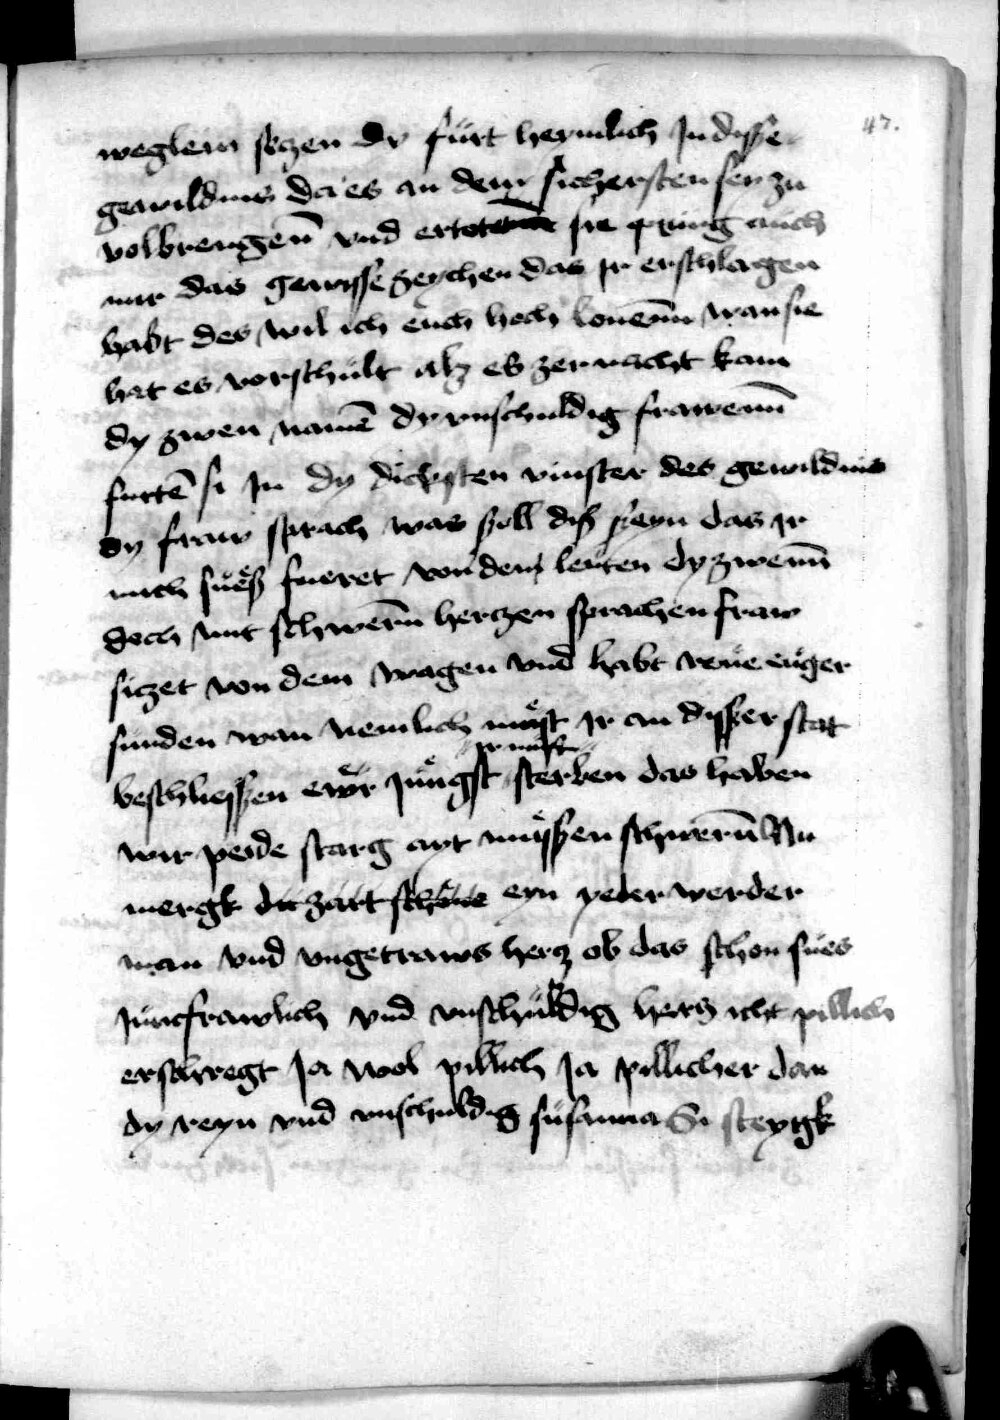 47.
weglein seczen Dy fürt heymlich Jn disse
gewildnus Da es an dem sichersten sey zu
volbrengenn̄ vnd ertotet sie pring auch
mir das gewisse zeychen das Jr erschlagen
habt des wil ich euch hoch lonenn wan sie
hat es vorschult alß es zernacht kam
dy zwen namē dy vnschuldig frawenn̄
furtē si Jn dy dicksten vinster des gewildnis
dy fraw sprach was soll diß seyn das ir
mich sueß fueret von dem leuten dy zwenn̄
doch mit schwern̄ herczen sprachen fraw
siczet von dem wagen vnd habt reue euger
sunden wan nemlich must Jr an disser stat
beschliessen ewr Jungst Jr must sterben das haben
wir peide starg ayt mussen schwern̄ Nu
mergk du zart schone eyn yeder werder
man vnd vngetraws hercz ob das schon sues
Juncfrawlich vnd vnschuldig hercz icht pillich
erschregt Ja wol pillich Ja pillicher dan
dy reyn vnd vnschuldig susanna Si steygk